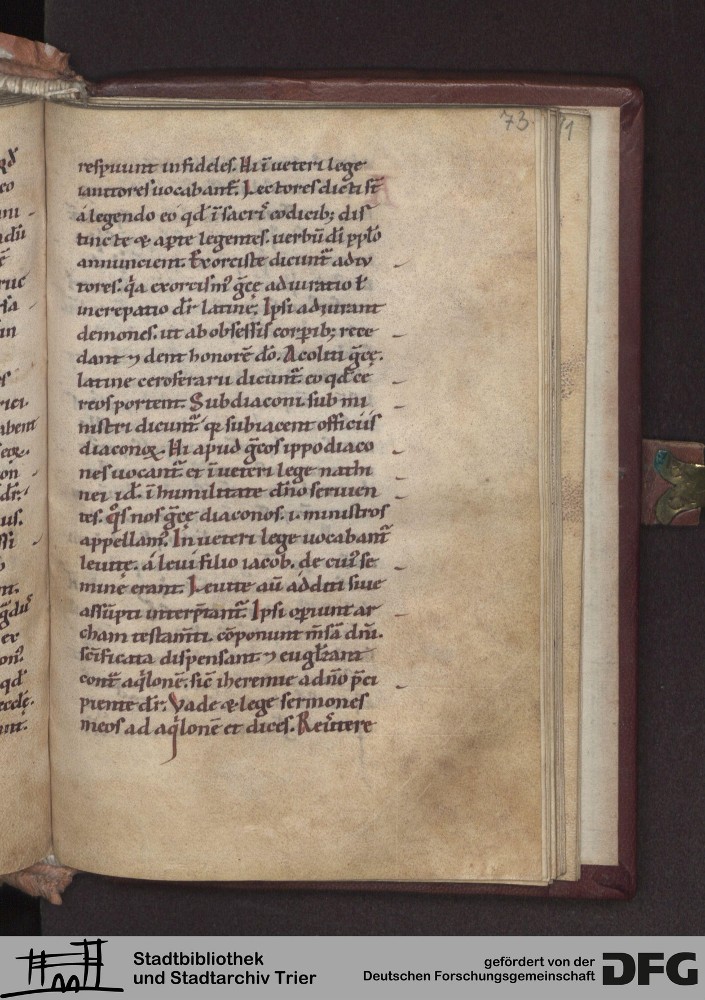 73
respuunt infideles. Hi ī ueteri lege
ianitores uocabant̄. Lectores dicti st̄
á legendo eo qd̄ ī sacrī codicib; dis
tincte & apte legentes. uerbū dī pplo
annuncient. Exorciste dicunt̄ adiu
tores. q̄a exorcism' ḡce adiuratio ł
increpatio dr̄ latine; Ipsi adiurant
demones. ut ab obsessis corpib; rece
dant ⁊ dent honorē dō. Acoliti ḡce.
latine ceroferarii dicunt̄ eo qd̄ ce
reos portent. Subdiaconi sub mi
nistri dicunt̄ q̄ subiacent officiis
diaconoꝝ. Hi apud ḡcos ippodiaco
nes uocant̄ et ī ueteri lege nathi
nei id. ī humilitate dn̄o seruien
tes. q̄s nos ḡce diaconos. i. ministros
appellam'. In ueteri lege uocabant̄
leuite. á leui filio iacob. de cui' se
mine erant. Leuite aū additi siue
assūpti interp̄tant̄. Ipsi opiunt ar
cham testam̄ti. cōponunt m̄sā dn̄i.
sc̄ificata dispensant ⁊ euglizant
cont̄ aq̇lonē. sic̄ iheremie a dn̄o p̄ci
piente dr̄. Vade & lege sermones
meos ad aq̇lonē et dices. Reuertere
Stadtbibliothek
und Stadtarchiv Trier
gefördert von der
Deutschen Forschungsgemeinschaft
DFG